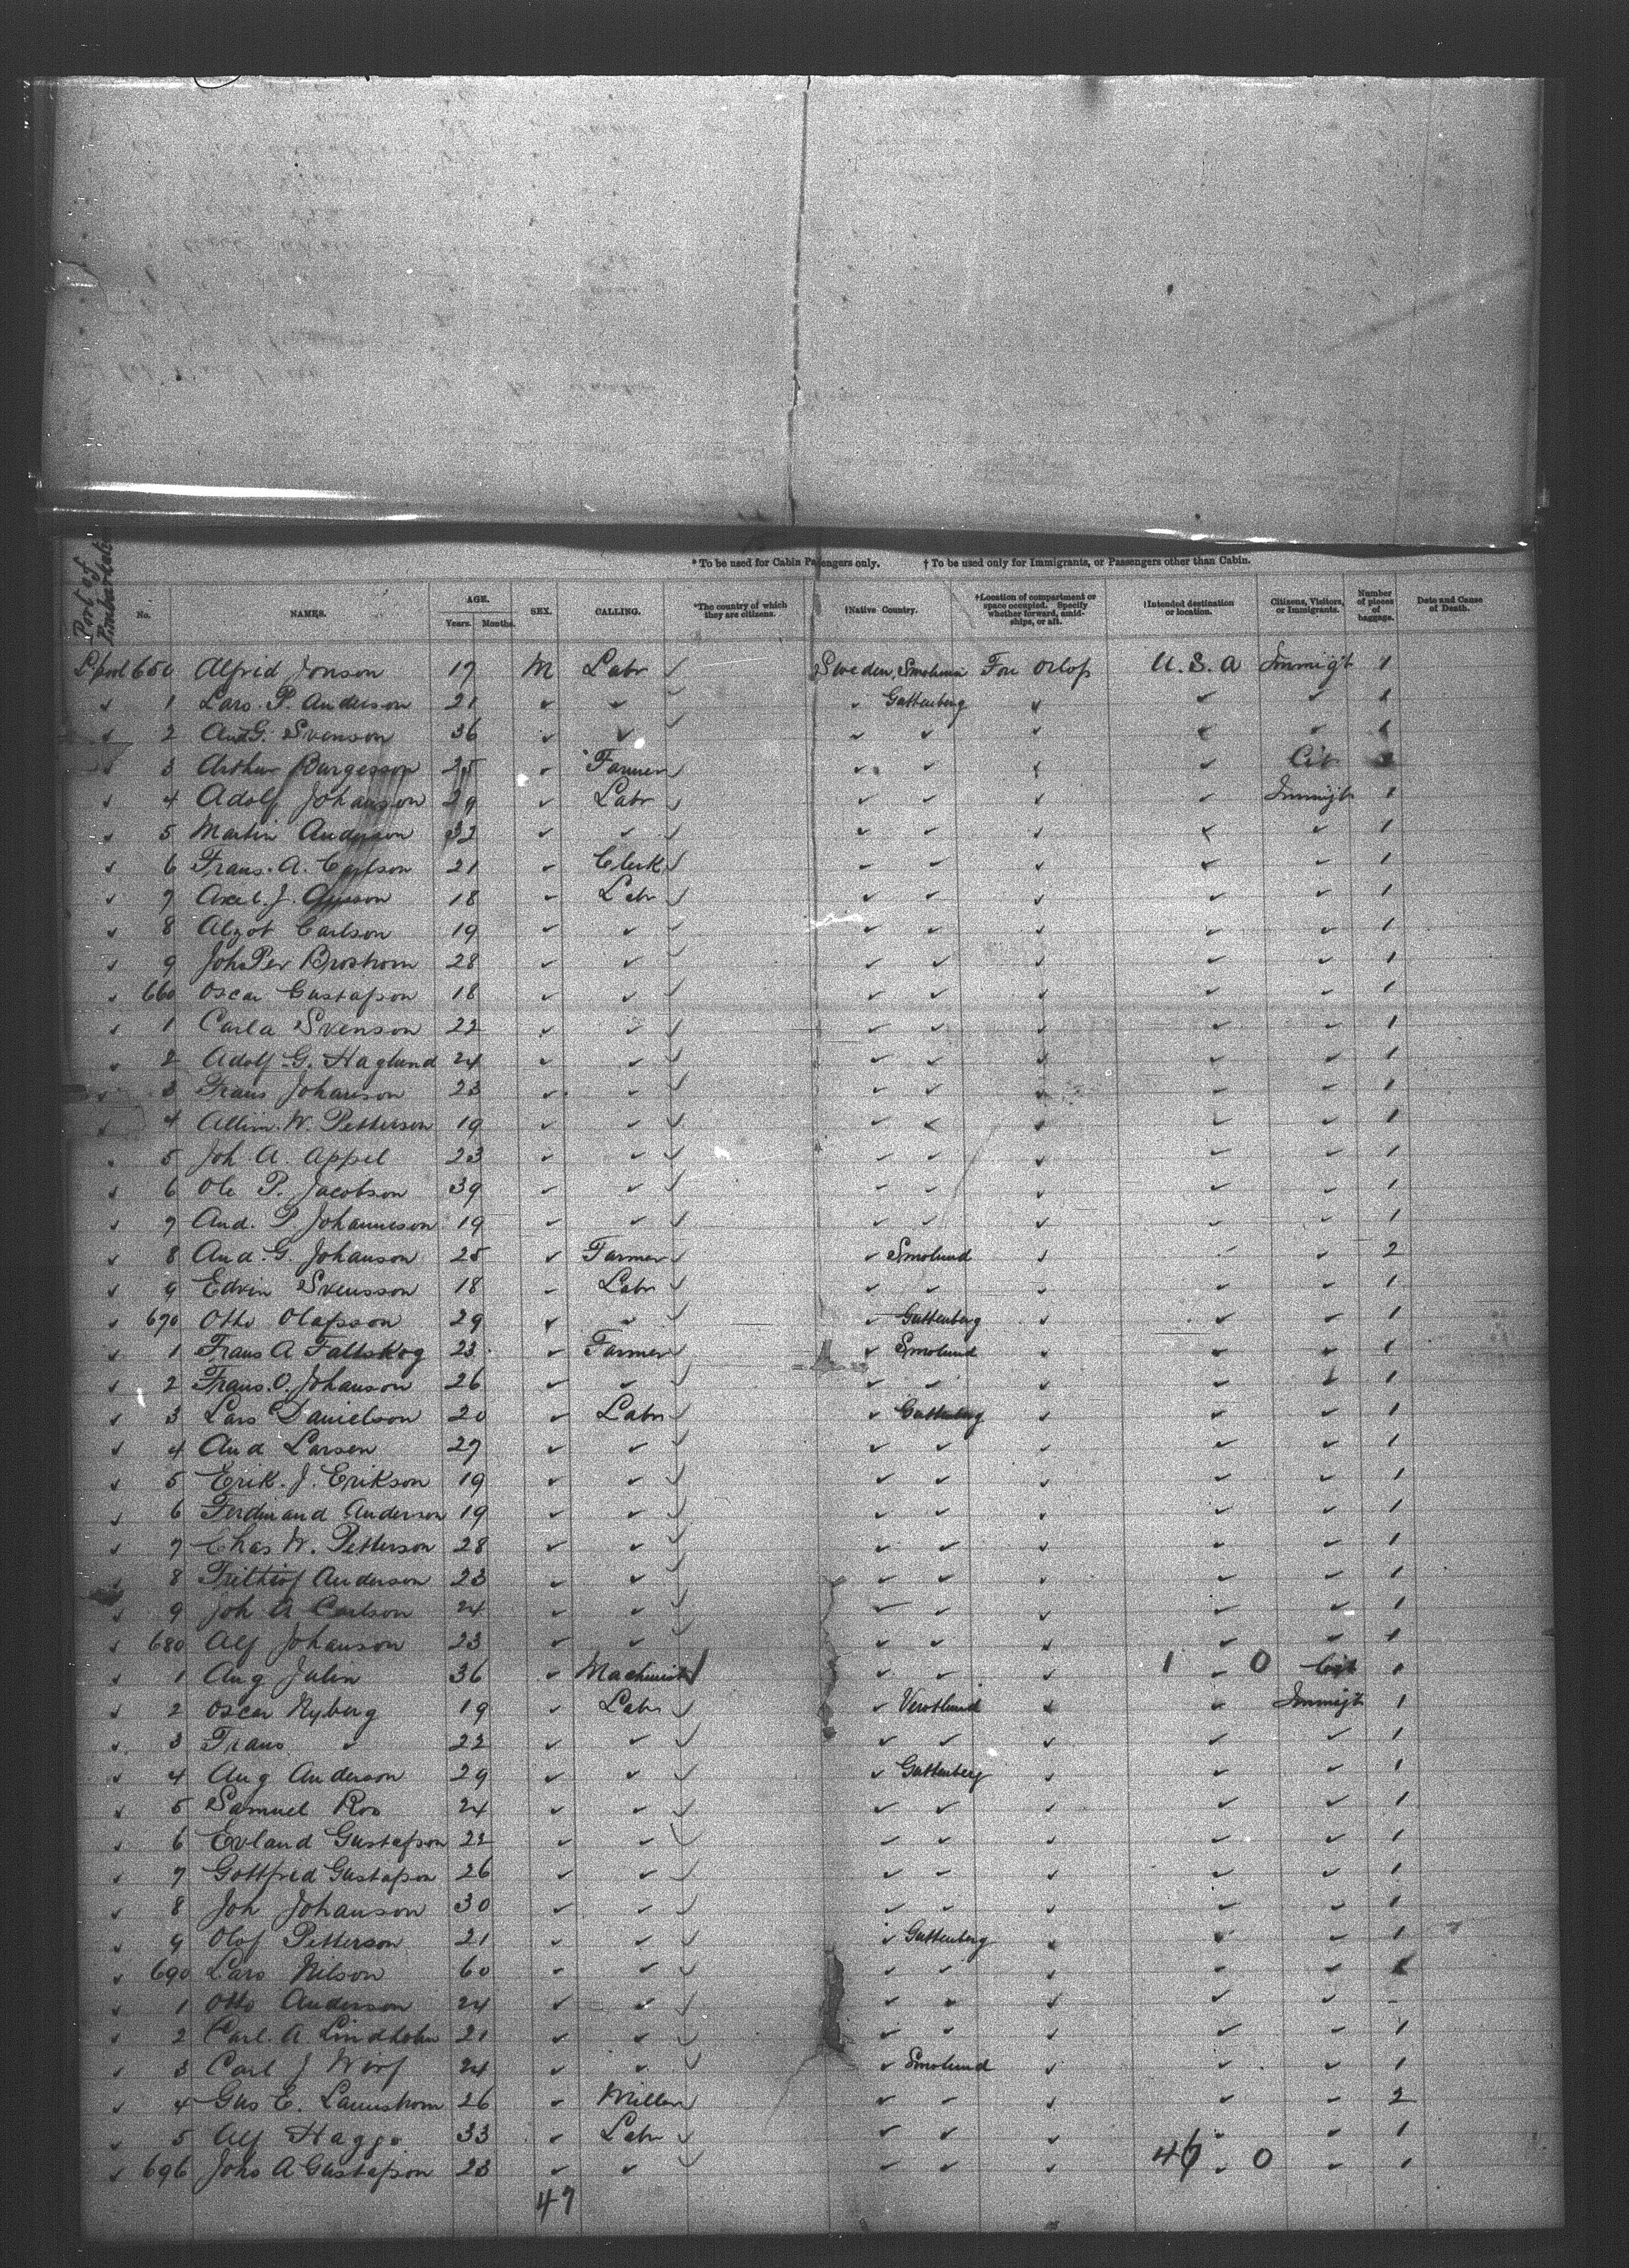 Port of Embarkat.
* To be used for Cabin Passengers only. † To be used only for Immigrants, or Passengers other than Cabin.
No. NAMES. AGE. Years. Months. SEX. CALLING. *The country of which they are citizens. †Native Country. †Location of compartment or space occupied. Specify whether forward, amidships, or aft. †Intended destination or location. Citizens, Visitors, or Immigrants. Number of pieces of baggage. Date and Cause of Death.
L'pool 650 Alfrid Jonson 17 M Labr ✓ Sweden, Fore Orlop U.S.A Immig't 1
✓ 1 Lars. P. Anderson 21 ✓ ✓ ✓ ✓ Guttenberg ✓ ✓ ✓ 1
✓ 2 And G. Svenson 36 ✓ ✓ ✓ ✓ ✓ ✓ ✓ ✓ 1
✓ 3 Arthur Burgesson 25 ✓ Farmer ✓ ✓ ✓ ✓ ✓ Cit
✓ 4 Adolf Johanson 29 ✓ Labr ✓ ✓ ✓ ✓ ✓ Immigt 1
✓ 5 Martin Anderson 32 ✓ ✓ ✓ ✓ ✓ ✓ ✓ ✓ 1
✓ 6 Frans. A. Carlson 21 ✓ Clerk ✓ ✓ ✓ ✓ ✓ ✓ 1
✓ 7 Axel. J. 18 ✓ Labr ✓ ✓ ✓ ✓ ✓ ✓ 1
✓ 8 Algot Carlson 19 ✓ ✓ ✓ ✓ ✓ ✓ ✓ ✓ 1
✓ 9 Joh. Per Brostrom 28 ✓ ✓ ✓ ✓ ✓ ✓ ✓ ✓ 1
✓ 660 Oscar Gustafson 18 ✓ ✓ ✓ ✓ ✓ ✓ ✓ ✓ 1
✓ 1 Carl a Svenson 22 ✓ ✓ ✓ ✓ ✓ ✓ ✓ ✓ 1
✓ 2 Adolf G. Haglund 24 ✓ ✓ ✓ ✓ ✓ ✓ ✓ ✓ 1
✓ 3 Frans Johanson 23 ✓ ✓ ✓ ✓ ✓ ✓ ✓ ✓ 1
✓ 4 W. Petterson 19 ✓ ✓ ✓ ✓ ✓ ✓ ✓ ✓ 1
✓ 5 Joh A. Appel 23 ✓ ✓ ✓ ✓ ✓ ✓ ✓ ✓ 1
✓ 6 Ole P. Jacobson 39 ✓ ✓ ✓ ✓ ✓ ✓ ✓ ✓ 1
✓ 7 And. P. Johanneson 19 ✓ ✓ ✓ ✓ ✓ ✓ ✓ ✓ 1
✓ 8 And. G. Johanson 25 ✓ Farmer ✓ ✓ Smolund ✓ ✓ ✓ 2
✓ 9 Edvin Svensson 18 ✓ Labr ✓ ✓ ✓ ✓ ✓ ✓ 1
✓ 670 Otto Olafsson 29 ✓ ✓ ✓ ✓ Guttenberg ✓ ✓ ✓ 1
✓ 1 Frans A Faltskog 23 ✓ Farmer ✓ ✓ Smolund ✓ ✓ ✓ 1
✓ 2 Frans. O. Johanson 26 ✓ ✓ ✓ ✓ ✓ ✓ ✓ ✓ 1
✓ 3 Lars Danielson 20 ✓ Labr ✓ ✓ Guttenberg ✓ ✓ ✓ 1
✓ 4 And Larsen 27 ✓ ✓ ✓ ✓ ✓ ✓ ✓ ✓ 1
✓ 5 Erik. J. Erikson 19 ✓ ✓ ✓ ✓ ✓ ✓ ✓ ✓ 1
✓ 6 Ferdinand Anderson 19 ✓ ✓ ✓ ✓ ✓ ✓ ✓ ✓ 1
✓ 7 Chas W. Petterson 28 ✓ ✓ ✓ ✓ ✓ ✓ ✓ ✓ 1
✓ 8 Frithiof Anderson 23 ✓ ✓ ✓ ✓ ✓ ✓ ✓ ✓ 1
✓ 9 Joh A Carlson 24 ✓ ✓ ✓ ✓ ✓ ✓ ✓ ✓ 1
✓ 680 Alf Johanson 23 ✓ ✓ ✓ ✓ ✓ ✓ ✓ ✓ 1
✓ 1 Aug Julin 36 ✓ Machinist ✓ ✓ ✓ ✓ 1 ✓ 0 Cit 1
✓ 2 Oscar Nyberg 19 ✓ Labr ✓ ✓ ✓ ✓ Immigt 1
✓ 3 Frans ✓ 22 ✓ ✓ ✓ ✓ ✓ ✓ ✓ ✓ 1
✓ 4 Aug Anderson 29 ✓ ✓ ✓ ✓ Guttenberg ✓ ✓ ✓ 1
✓ 5 Samuel Ros 24 ✓ ✓ ✓ ✓ ✓ ✓ ✓ ✓ 1
✓ 6 Evland Gustafson 22 ✓ ✓ ✓ ✓ ✓ ✓ ✓ ✓ 1
✓ 7 Gottfred Gustafson 26 ✓ ✓ ✓ ✓ ✓ ✓ ✓ ✓ 1
✓ 8 Joh Johanson 30 ✓ ✓ ✓ ✓ ✓ ✓ ✓ ✓ 1
✓ 9 Olof Petterson 21 ✓ ✓ ✓ ✓ Guttenberg ✓ ✓ ✓ 1
✓ 690 Lars Nelson 60 ✓ ✓ ✓ ✓ ✓ ✓ ✓ ✓
✓ 1 Otto Anderson 24 ✓ ✓ ✓ ✓ ✓ ✓ ✓ ✓ -
✓ 2 Carl. A. Lindholm 21 ✓ ✓ ✓ ✓ ✓ ✓ ✓ ✓ 1
✓ 3 Carl J 24 ✓ ✓ ✓ ✓ Smolund ✓ ✓ ✓ 1
✓ 4 Gus E. 26 ✓ Miller ✓ ✓ ✓ ✓ ✓ ✓ 2
✓ 5 Alf Hagge 33 ✓ Labr ✓ ✓ ✓ ✓ ✓ ✓ 1
✓ 696 Johs A Gustafson 23 ✓ ✓ ✓ ✓ ✓ 46 ✓ 0 ✓ 1
47